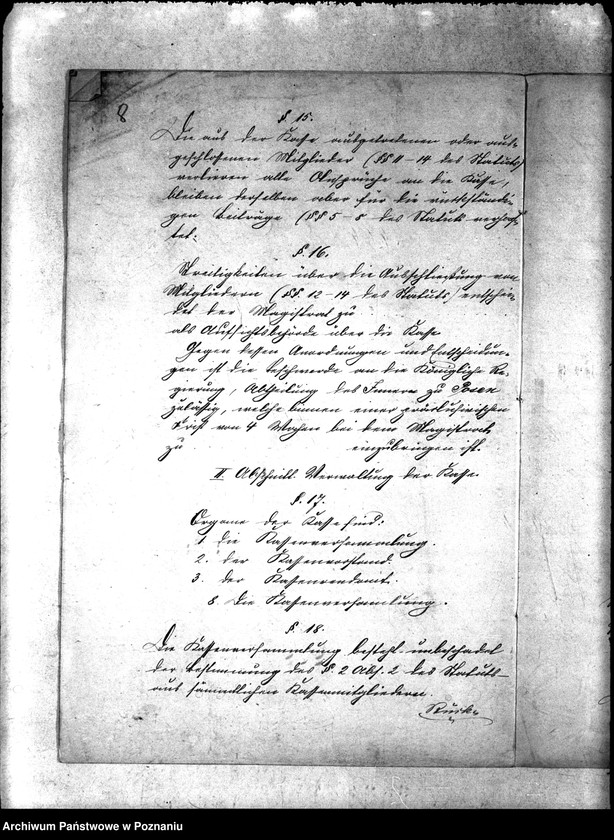 8
§. 15.
Die aus der Kasse ausgetretenen oder aus-
geschlossenen Mitglieder (§§ 11-14 des Statuts)
verlieren alle Ansprüche an die Kasse,
bleiben derselben aber für die rückständi-
gen Beiträge (§§ 5-8 des Statuts verhaf-
tet.
§. 16.
Streitigkeiten über die Ausschließung von
Mitgliedern (§§. 12-14 des Statuts) entschei-
det der Magistrat zu
als Aufsichtsbehörde über die Kasse
Gegen dessen Anordnungen und Entscheidun-
gen ist die Beschwerde an die Königliche Re-
gierung, Abtheilung des Innern zu Posen
zuläßig, welche binnen einer präklusivischen
Frist von 4 Wochen bei dem Magistrat
zu einzubringen ist.
II Abschnitt. Verwaltung der Kasse
§. 17.
Organe der Kasse sind:
1. die Kassenversammlung.
2. der Kassenvorstand.
3. der Kassenrendant.
Die Kassenversammlung.
§. 18.
Die Kassenversammlung besteht unbeschadet
der Bestimmung des §. 2 Abs. 2 des Statuts
aus sämmtlichen Kassenmitgliedern.
Archiwum Państwowe w Poznaniu